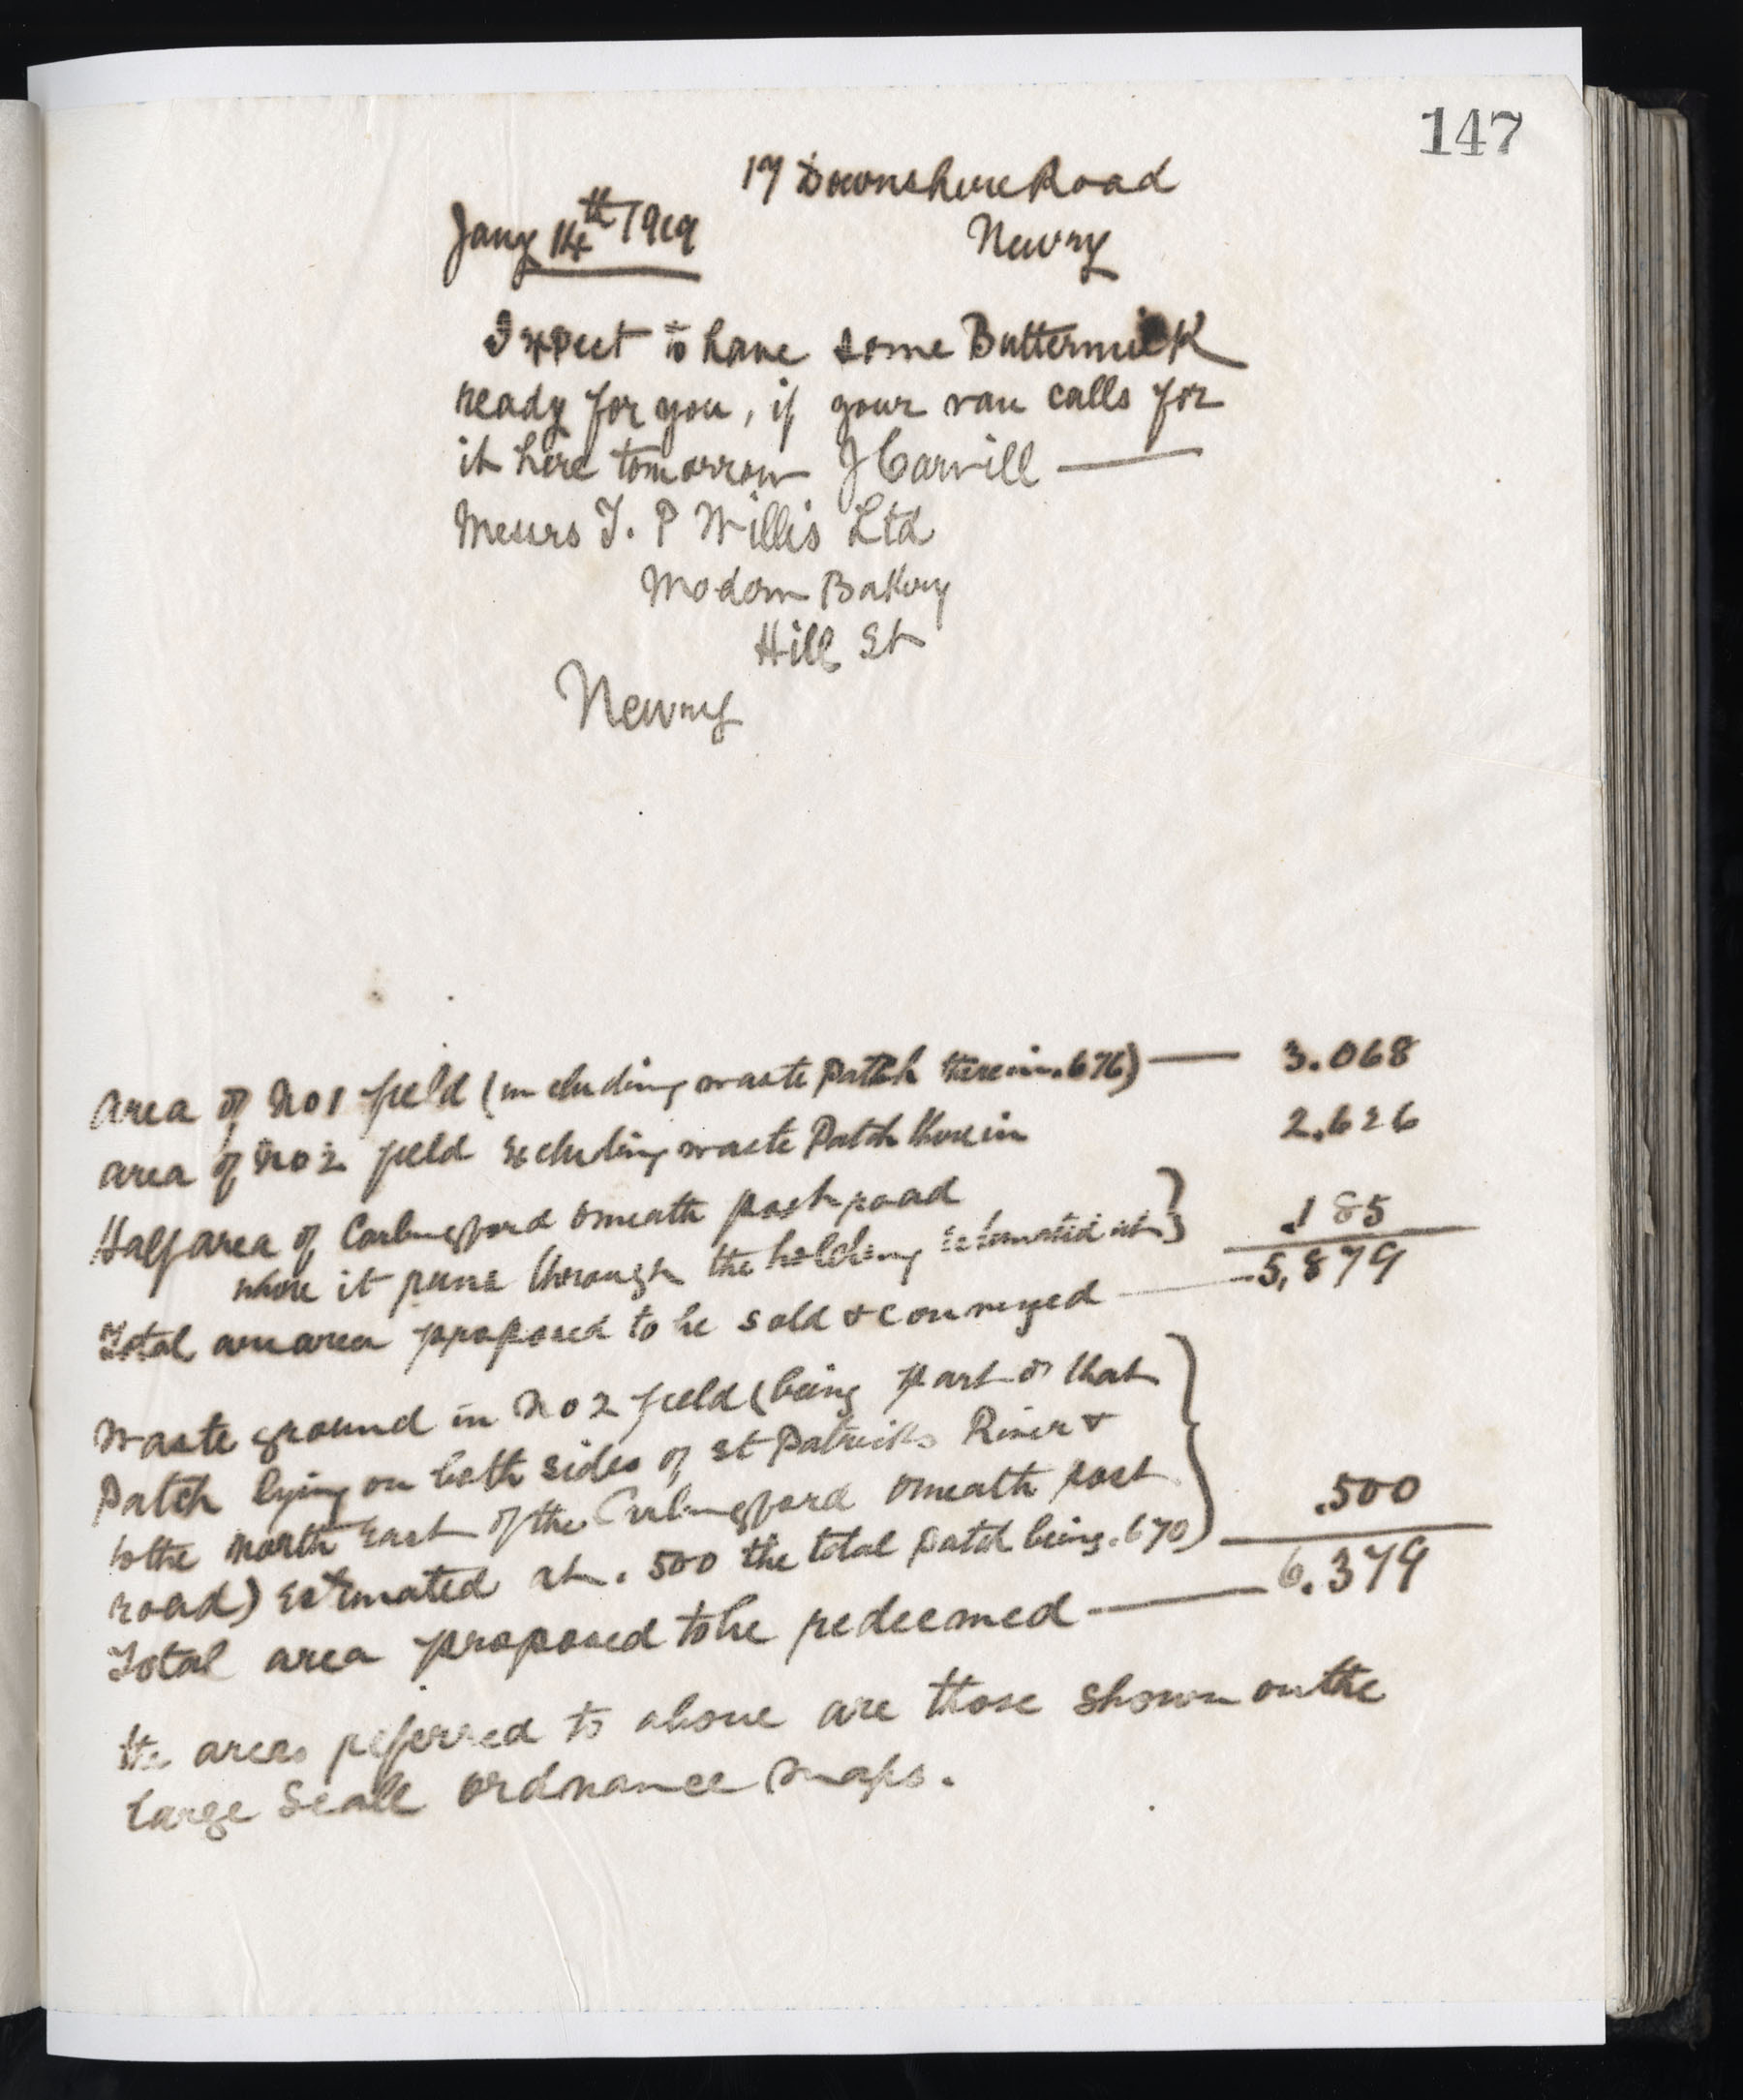 147
17 Downshire Road
Jany 14th 1919
Newry
I expect to have some Buttermilk
ready for you, if your van calls for
it here tomorrow J Carvill
Messrs T. P Willis Ltd
Modern Bakery
Hill St
Newry
Area of No 1 field (including waste patch therein .676) — 3.068
Area of No 2 field excluding waste Patch therein 2.626
Half area of Carlingford Omeath post road
where it runs through the holding estimated at } .185
Total area proposed to be sold & conveyed — 5,879
Waste ground in No 2 field (being part of that
Patch lying on both sides of St Patricks River &
to the North East of the Carlingford Omeath post
road) estimated at .500 the total patch being .670) .500
Total area proposed to be redeemed — 6.379
the areas referred to above are those shown on the
large Scale ordnance maps.